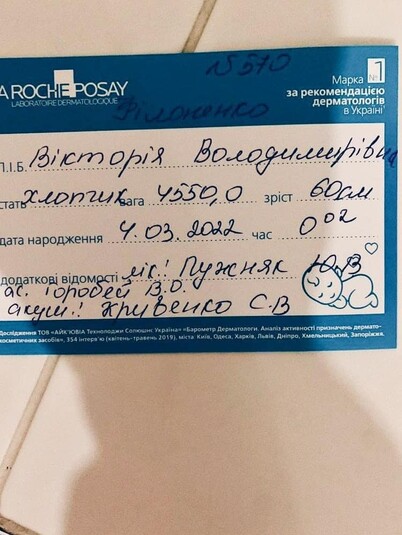 LA ROCHE POSAY
LABORATOIRE DERMATOLOGIQUE
N 570
Марка №1
за рекомендацією
дерматологів
в Україні
Філоненко
П.І.Б. Вікторія Володимирівна
стать хлопчик вага 4550,0 зріст 60см
дата народження 4.03.2022 час 0 02
додаткові відомості лік: Лужняк Ю.В
ас. Горобей В.О.
акуш: Кривенко С.В
Дослідження ТОВ «АЙК'ЮВІА Текнолоджи Солюшнс Україна» «Барометр Дерматологи. Аналіз активності призначень дермато-
косметичних засобів», 354 інтерв'ю (квітень-травень 2019), міста: Київ, Одеса, Харків, Львів, Дніпро, Хмельницький, Запоріжжя.